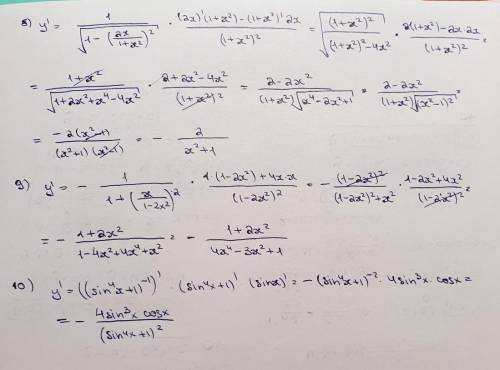 8) y' = 1/√(1-(2x/(1+x²))²) · ((2x)'(1+x²)-(1+x²)'2x)/(1+x²)² = √((1+x²)²/((1+x²)²-4x²)) · (2(1+x²)-2x·2x)/(1+x²)² =
= (1+x²)/√(1+2x²+x⁴-4x²) · (2+2x²-4x²)/(1+x²)² = (2-2x²)/((1+x²)√(x⁴-2x²+1)) = (2-2x²)/((1+x²)√(x²-1)²) =
= -2(x²-1)/((x²+1)(x²-1)) = - 2/(x²+1)
9) y' = - 1/(1+(x/(1-2x²))²) · (1·(1-2x²)+4x·x)/(1-2x²)² = - (1-2x²)²/((1-2x²)²+x²) · (1-2x²+4x²)/(1-2x²)² =
= - (1+2x²)/(1-4x²+4x⁴+x²) = - (1+2x²)/(4x⁴-3x²+1)
10) y' = ((sin⁴x+1)⁻¹)' · (sin⁴x+1)' (sinx)' = -(sin⁴x+1)⁻² · 4sin³x · cosx =
= - 4sin³x cosx/(sin⁴x+1)²